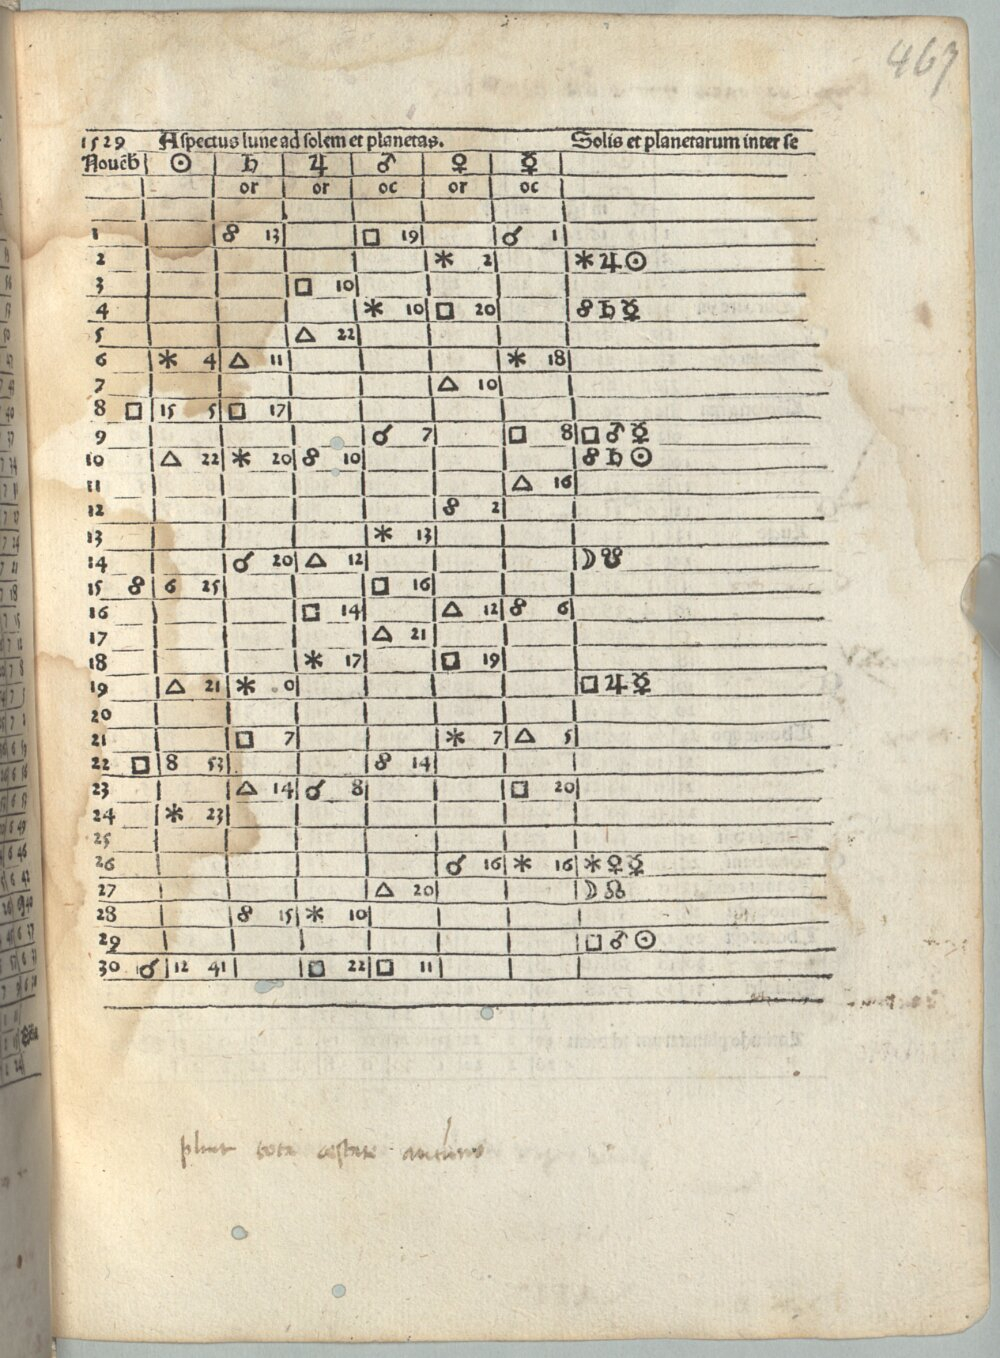 467
1529 Aspectus lune ad solem et planetas. Solis et planetarum inter se
Nouēb ☉ ♄ ♃ ♂ ♀ ☿
or or oc or oc
1 ☍ 13 □ 19 ☌ 1
2 ⚹ 2 ⚹ ♃ ☉
3 □ 10
4 ⚹ 10 □ 20 ☍ ♄ ☿
5 △ 22
6 ⚹ 4 △ 11 ⚹ 18
7 △ 10
8 □ 15 5 □ 17
9 ☌ 7 □ 8 □ ♂ ☿
10 △ 22 ⚹ 20 ☍ 10 ☍ ♄ ☉
11 △ 16
12 ☍ 2
13 ⚹ 13
14 ☌ 20 △ 12 ☽ ☋
15 ☍ 6 25 □ 16
16 □ 14 △ 12 ☍ 6
17 △ 21
18 ⚹ 17 □ 19
19 △ 21 ⚹ 0 □ ♃ ☿
20
21 □ 7 ⚹ 7 △ 5
22 □ 8 53 ☍ 14
23 △ 14 ☌ 8 □ 20
24 ⚹ 23
25
26 ☌ 16 ⚹ 16 ⚹ ♀ ☿
27 △ 20 ☽ ☊
28 ☍ 15 ⚹ 10
29 □ ♂ ☉
30 ☌ 12 41 □ 22 □ 11
tota